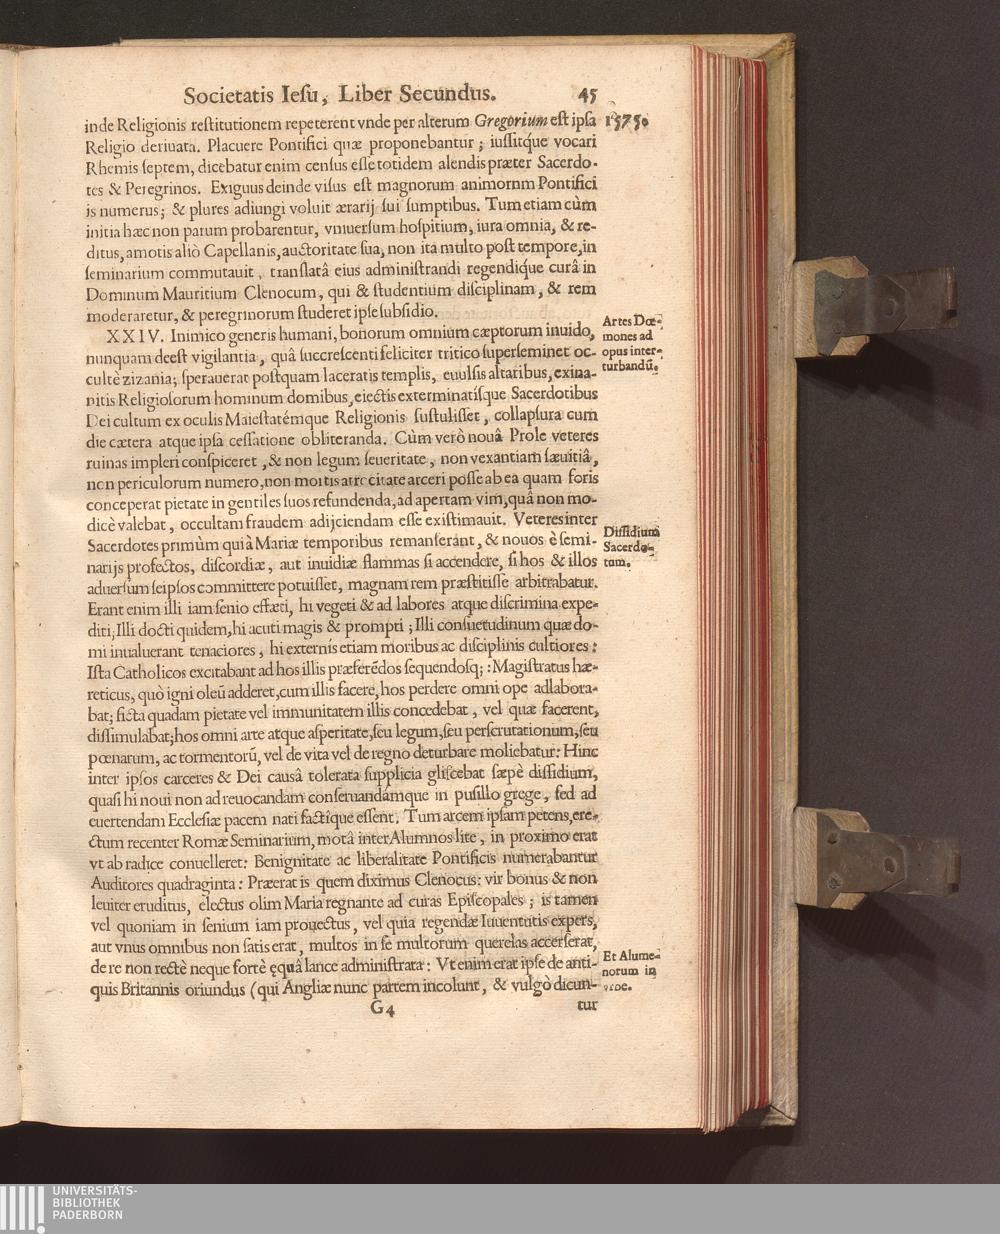 Societatis Iesu, Liber Secundus. 45
inde Religionis restitutionem repeterent vnde per alterum Gregorium est ipsa 1575.
Religio deriuata. Placuere Pontifici quæ proponebantur; iussitq́ue vocari
Rhemis septem, dicebatur enim census esse totidem alendis præter Sacerdo-
tes & Peregrinos. Exiguus deinde visus est magnorum animornm Pontifici
is numerus; & plures adiungi voluit ærarij sui sumptibus. Tum etiam cùm
initia hæc non parum probarentur, vniuersum hospitium, iura omnia, & re-
ditus, amotis aliò Capellanis, auctoritate sua, non ita multo post tempore, in
seminarium commutauit, translatâ eius administrandi regendiq́ue curâ in
Dominum Mauritium Clenocum, qui & studentium disciplinam, & rem
moderaretur, & peregrinorum studeret ipse subsidio.
XXIV. Inimico generis humani, bonorum omnium cæptorum inuido,
Artes Dœ-
mones ad
opus inter-
turbandũ.
nunquam deest vigilantia, quâ succrescenti feliciter tritico superseminet oc-
cultè zizania; sperauerat postquam laceratis templis, euulsis altaribus, exina-
nitis Religiosorum hominum domibus, eiectis exterminatísque Sacerdotibus
Dei cultum ex oculis Maiestatémque Religionis sustulisset, collapsura cum
die cætera atque ipsa cessatione obliteranda. Cùm verò nouâ Prole veteres
ruinas impleri conspiceret, & non legum seueritate, non vexantium sæuitiâ,
non periculorum numero, non mortis atrocitate arceri posse ab ea quam foris
conceperat pietate in gentiles suos refundenda, ad apertam vim, quâ non mo-
dicè valebat, occultam fraudem adijciendam esse existimauit. Veteres inter
Dissidium
Sacerdo-
tum.
Sacerdotes primùm qui à Mariæ temporibus remanserant, & nouos è semi-
narijs profectos, discordiæ, aut inuidiæ flammas si accendere, si hos & illos
aduersum seipsos committere potuisset, magnam rem præstitisse arbitrabatur.
Erant enim illi iam senio effæti, hi vegeti & ad labores atque discrimina expe-
diti; Illi docti quidem, hi acuti magis & prompti; Illi consuetudinum quæ do-
mi inualuerant tenaciores, hi externis etiam moribus ac disciplinis cultiores:
Ista Catholicos excitabant ad hos illis præferẽdos sequendosq;: Magistratus hæ-
reticus, quò igni oleũ adderet, cum illis facere, hos perdere omni ope adlabora-
bat; ficta quadam pietate vel immunitatem illis concedebat, vel quæ facerent,
dissimulabat; hos omni arte atque asperitate, seu legum, seu perscrutationum, seu
pœnarum, ac tormentorũ, vel de vita vel de regno deturbare moliebatur: Hinc
inter ipsos carceres & Dei causâ tolerata supplicia gliscebat sæpè dissidium,
quasi hi noui non ad reuocandam conseruandámque in pusillo grege, sed ad
euertendam Ecclesiæ pacem nati factique essent. Tum arcem ipsam petens, ere-
ctum recenter Romæ Seminarium, motâ inter Alumnos lite, in proximo erat
vt ab radice conuelleret: Benignitate ac liberalitate Pontificis numerabantur
Auditores quadraginta: Præerat is quem diximus Clenocus: vir bonus & non
leuiter eruditus, electus olim Maria regnante ad curas Episcopales; is tamen
vel quoniam in senium iam prouectus, vel quia regendæ Iuuentutis expers,
aut vnus omnibus non satis erat, multos in se multorum querelas accerserat,
Et Alumne-
norum in
vrbe.
de re non rectè neque fortè ęquâ lance administrata: Vt enim erat ipse de anti-
quis Britannis oriundus (qui Angliæ nunc partem incolunt, & vulgò dicun-
G4 tur
UNIVERSITÄTS-
BIBLIOTHEK
PADERBORN